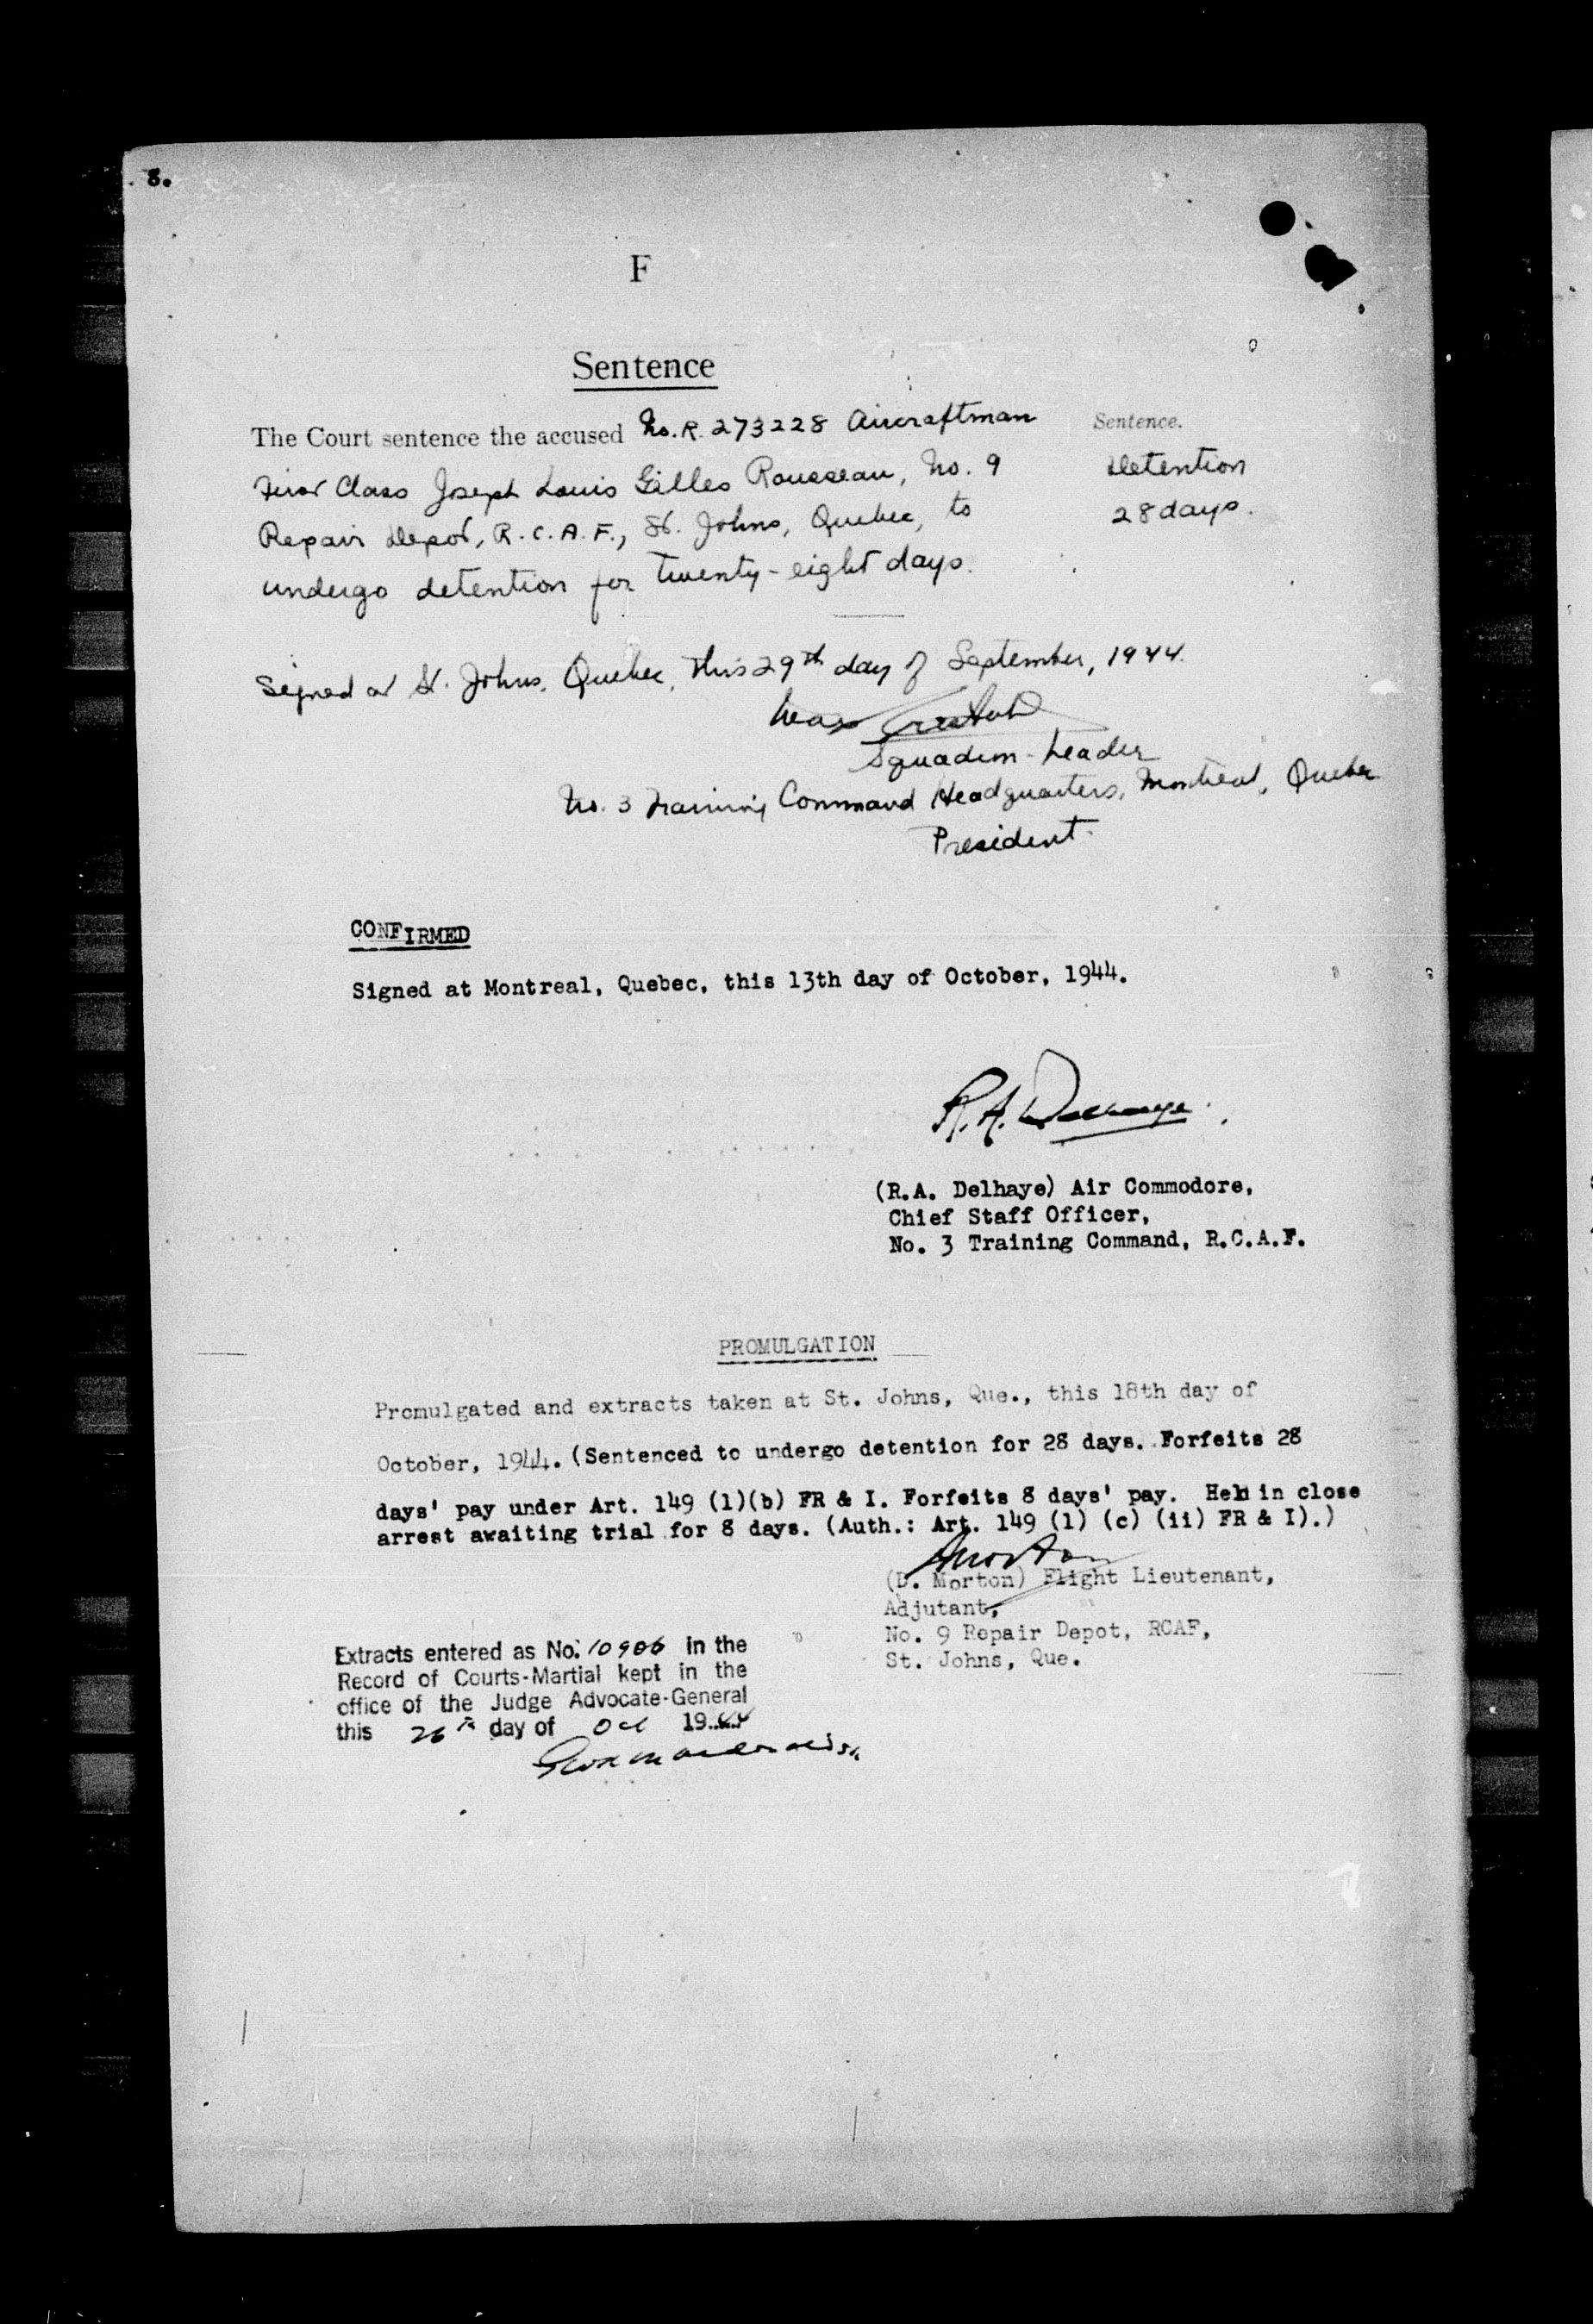 8.
F
Sentence
The Court sentence the accused No. R. 273228 Aircraftman
Sentence.
First Class Joseph Louis Gilles Rousseau, No. 9
Detention
Repair Depot, R.C.A.F., St. Johns, Quebec, to
28 days.
undergo detention for twenty-eight days.
Signed at St. Johns, Quebec, this 29th day of September, 1944.
Squadron-Leader
No. 3 Training Command Headquarters, Montreal, Quebec
President.
CONFIRMED
Signed at Montreal, Quebec, this 13th day of October, 1944.
R.A. Delhaye.
(R.A. Delhaye) Air Commodore,
Chief Staff Officer,
No. 3 Training Command, R.C.A.F.
PROMULGATION
Promulgated and extracts taken at St. Johns, Que., this 18th day of
October, 1944. (Sentenced to undergo detention for 28 days. Forfeits 28
days' pay under Art. 149 (1)(b) FR & I. Forfeits 8 days' pay. Held in close
arrest awaiting trial for 8 days. (Auth.: Art. 149 (1) (c) (ii) FR & I).)
Morton
(D. Morton) Flight Lieutenant,
Adjutant,
No. 9 Repair Depot, RCAF,
St. Johns, Que.
Extracts entered as No. 10906 in the
Record of Courts-Martial kept in the
office of the Judge Advocate-General
this 26th day of Oct 1944